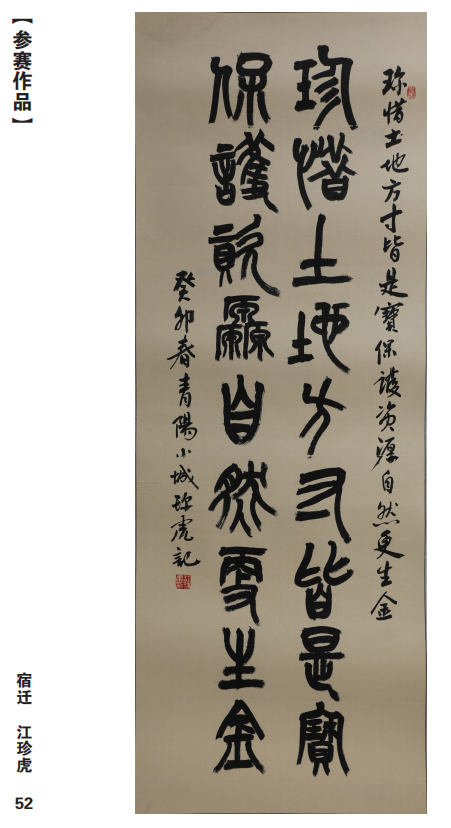 【参赛作品】
珍惜土地方寸皆是寶保護資源自然更生金
珍惜土地方寸皆是寶
保護資源自然更生金
癸卯春青陽小城珍虎記
宿迁 江珍虎
52